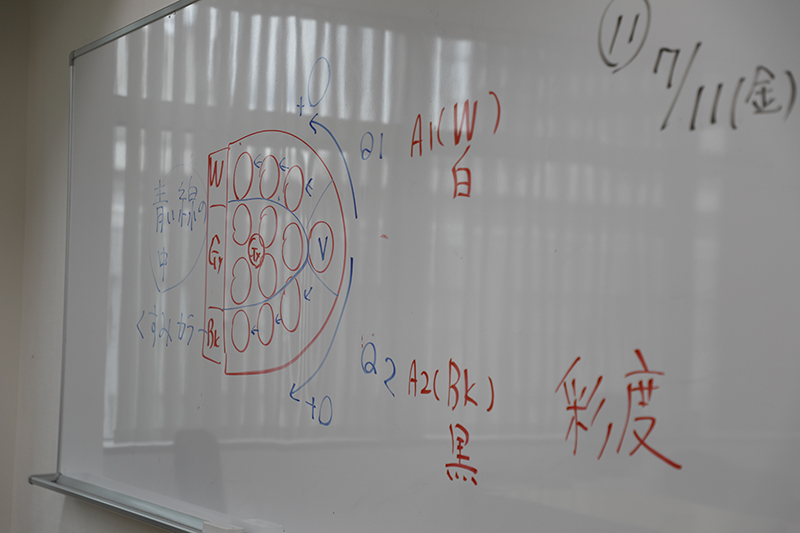 ⑪ 7/11(金)
+0
Q1 A1(W)
白
W
Gy
Bk
Gy
V
青い線の
中
くすみカラー
Q2 A2(Bk)
黒
+0
彩度